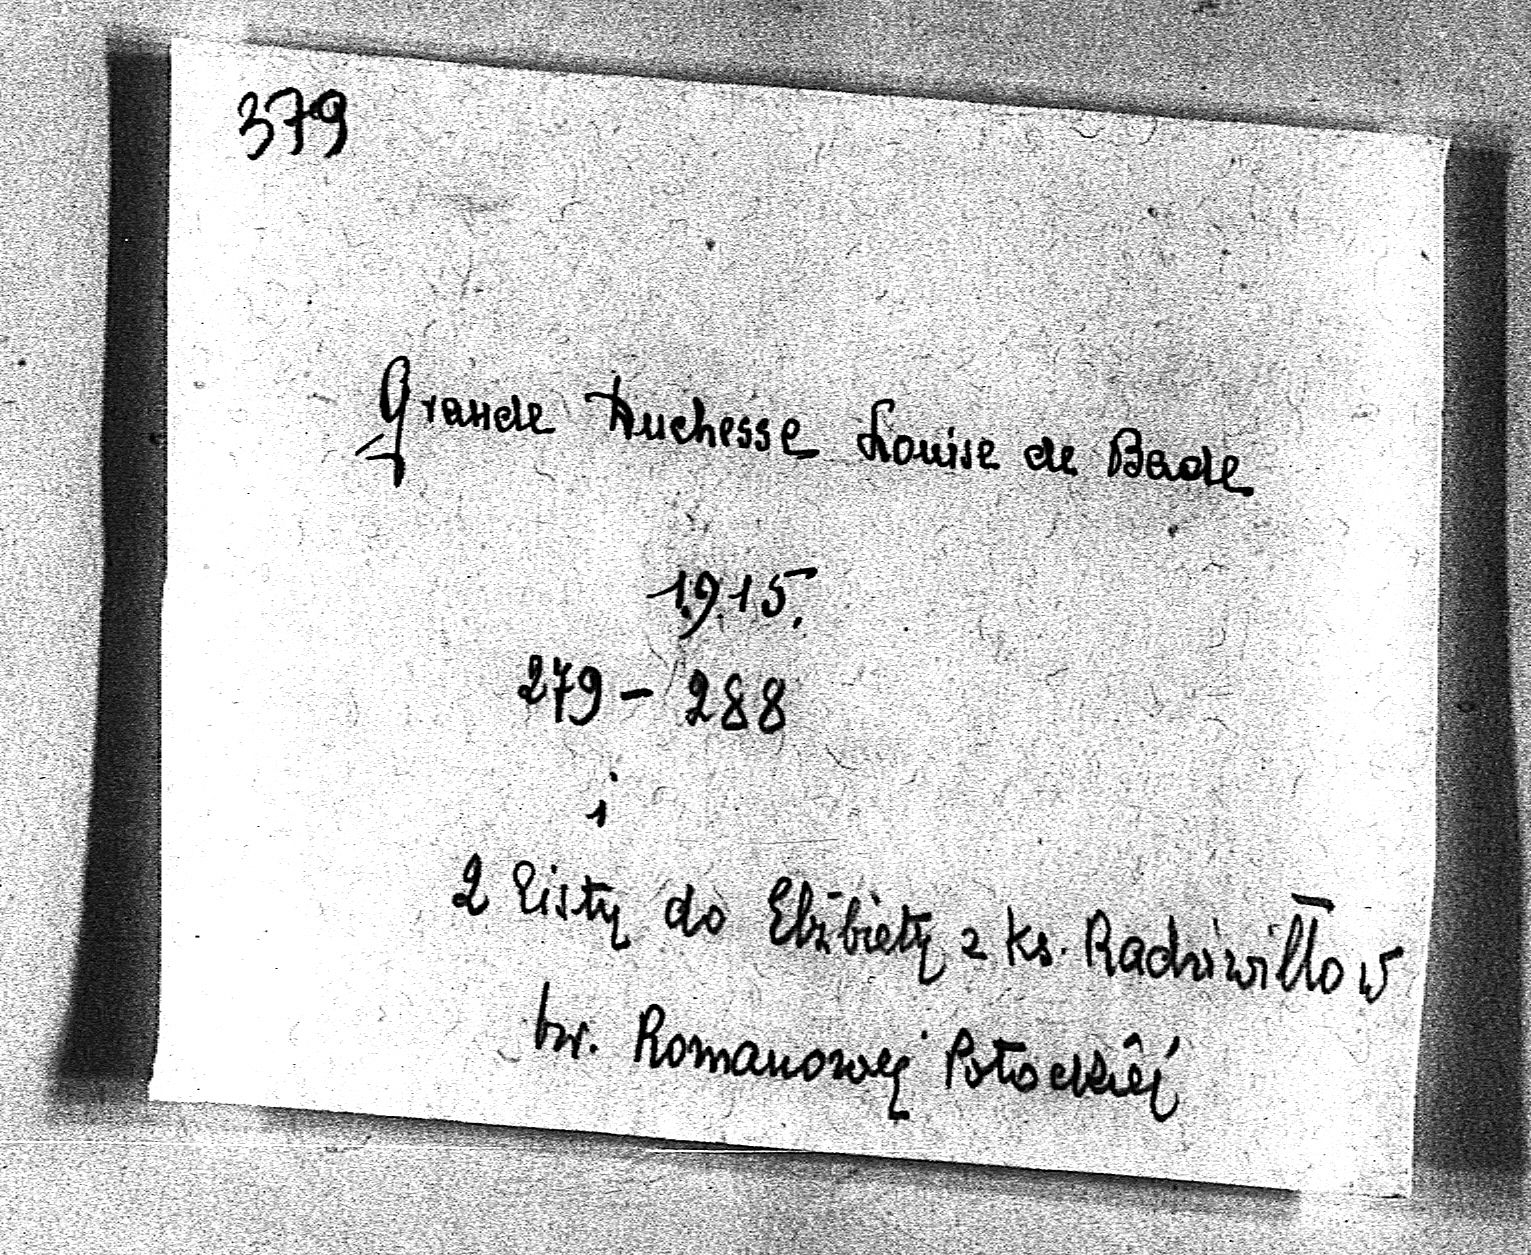 379
Grande Duchesse Louise de Bade
1915.
279 - 288
i
2 listy do Elżbiety z ks. Radziwiłłow
hr. Romanowej Potockiej